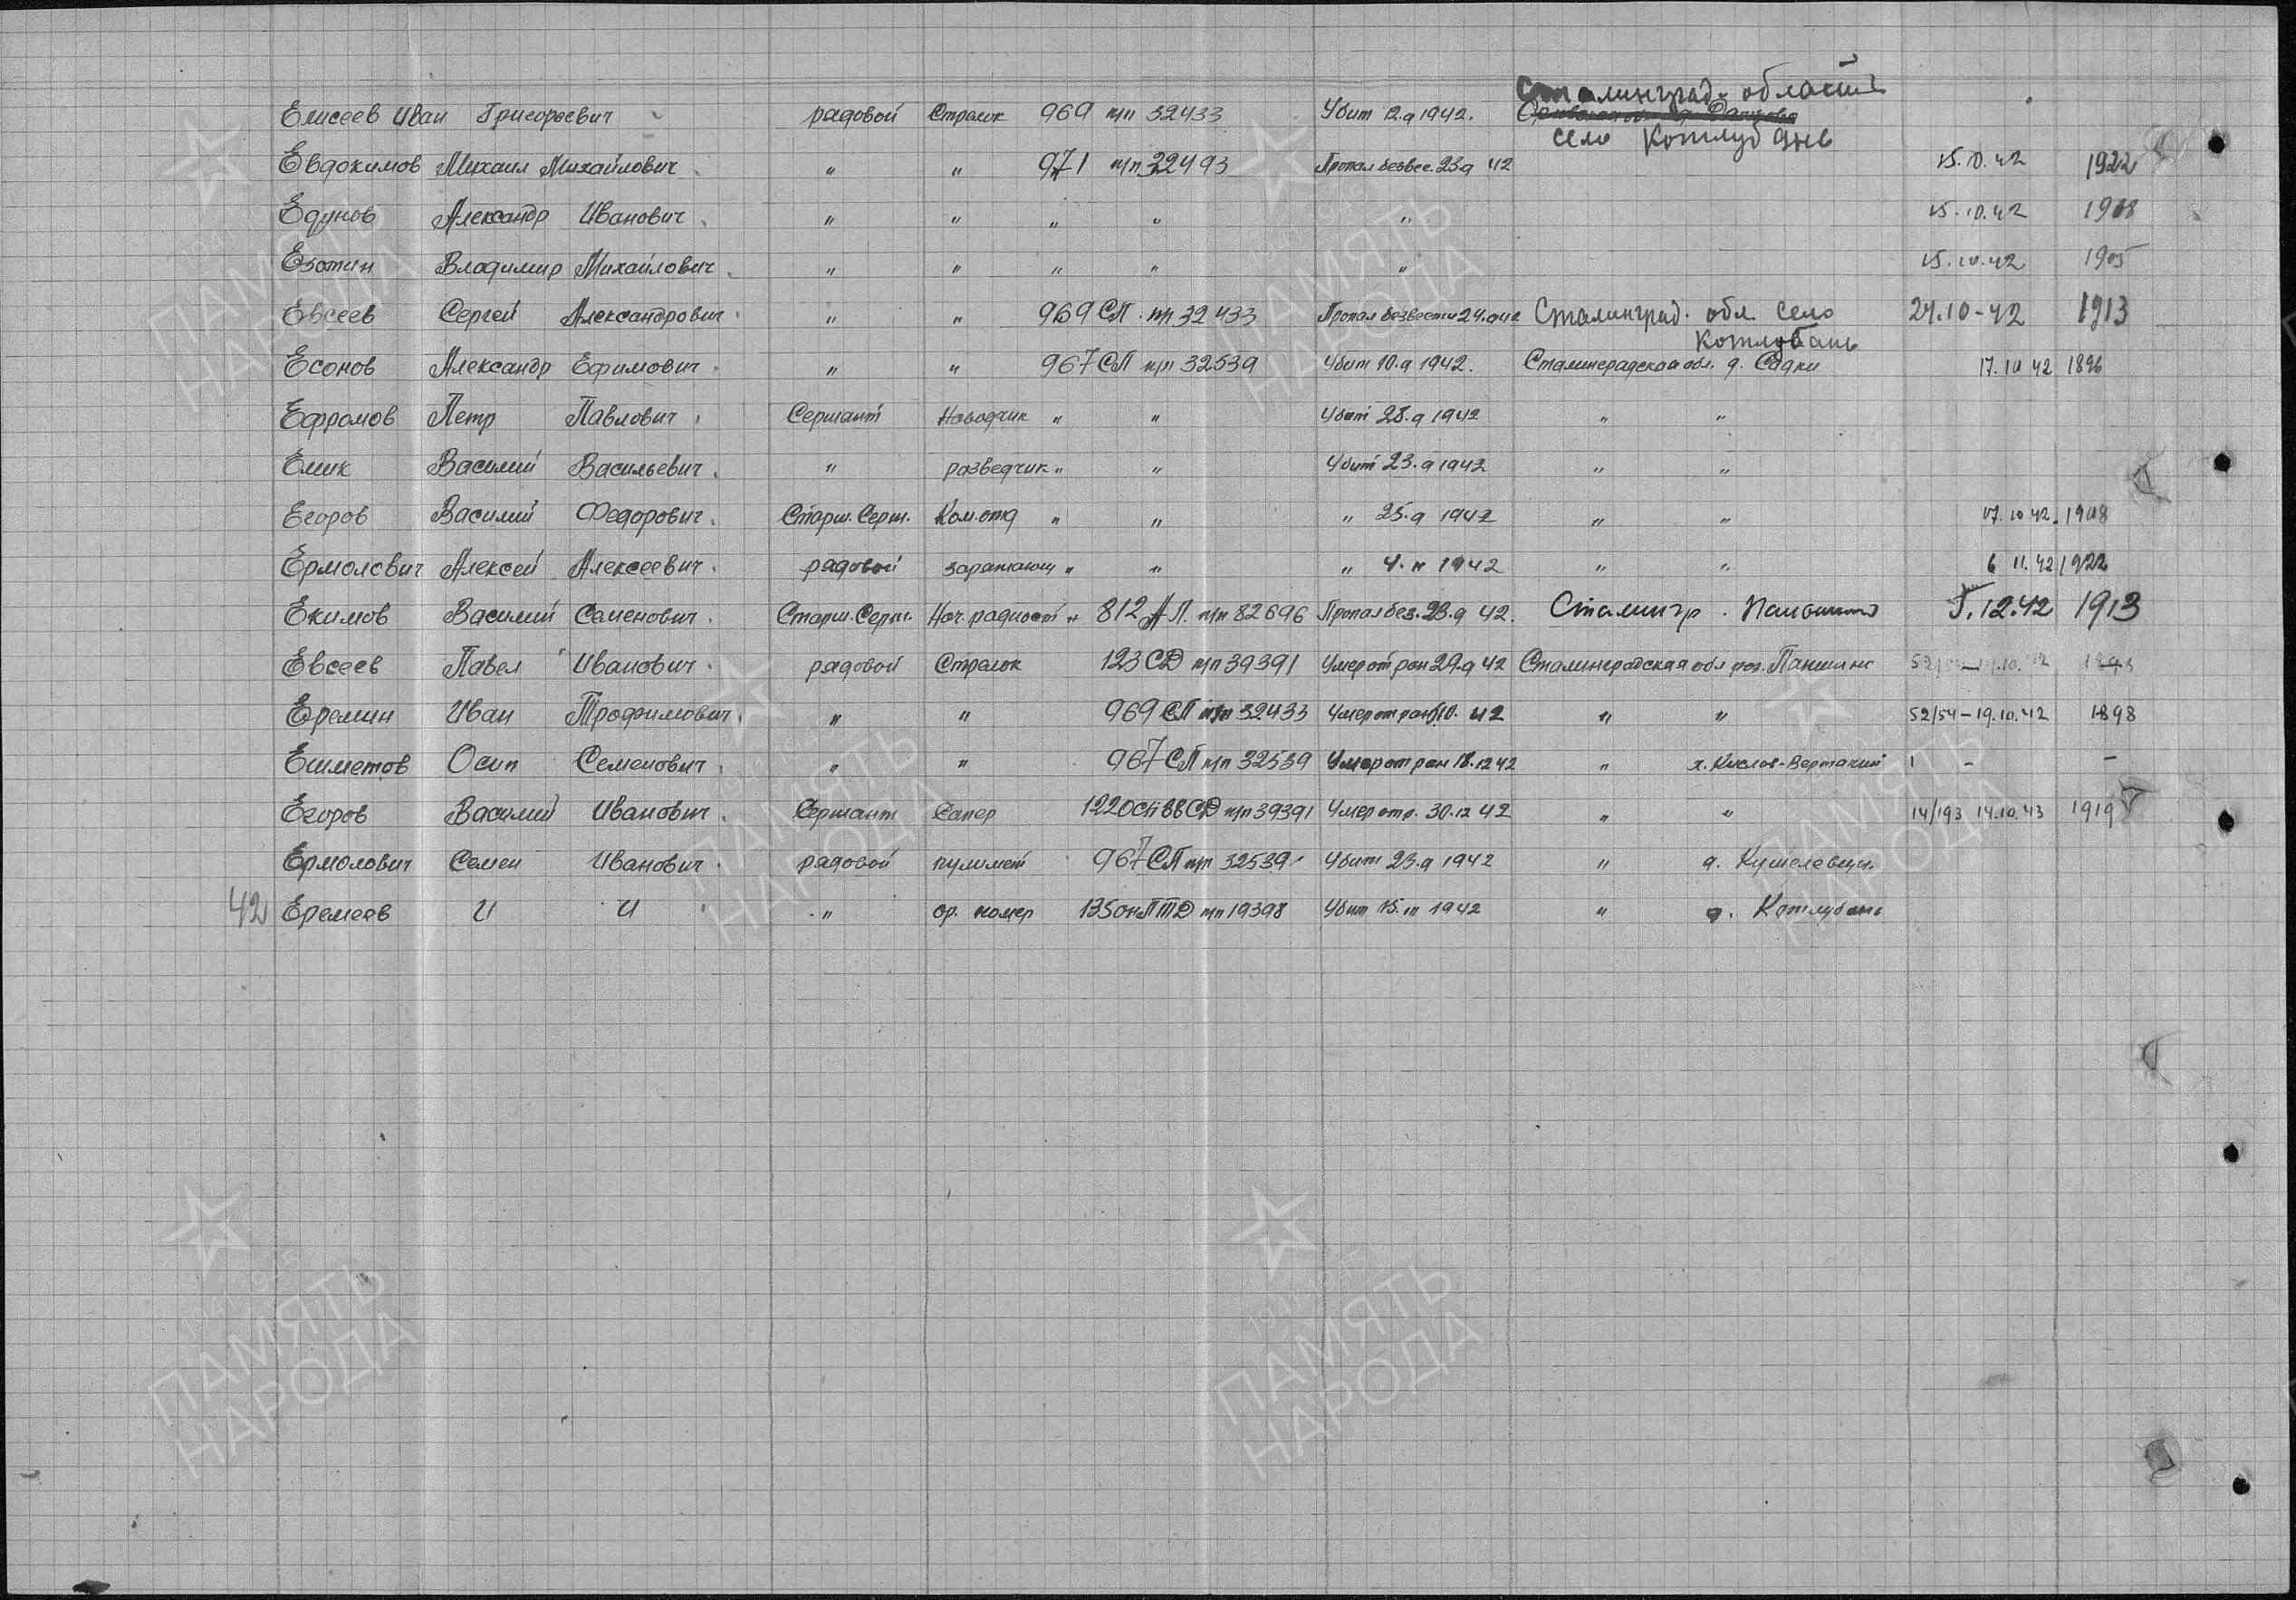 Сталинград. области
Елисеев Иван Григореевич рядовой Стрелок 969 п/п 32433 Убит 12.9 1942.
село Котлубань
Евдокимов Михаил Михайлович " " 971 п/п 32493 Пропал безвес. 23.9 42 15.10.42 1922
Едунов Александр Иванович " " " " " 15.10.42 1908
Езотин Владимир Михайлович " " " " " 15.10.42 1905
Евсеев Сергей Александрович " " 969 СП п/п 32433 Пропал безвести 24.9 42 Сталинград. обл. село 24.10-42 1913
Котлубань
Есонов Александр Ефимович " " 967 СП п/п 32539 Убит 10.9 1942. Сталинградская обл. д. Садки 17.10 42 1896
Ефромов Петр Павлович Сержант Наводчик " " Убит 28.9 1942 " "
Елик Василий Васильевич " разведчик " " Убит 23.9 1942 " "
Егоров Василий Федорович Старш. Серж. Ком.отд " " " 25.9 1942 " " 17.10 42 1908
Ермолович Алексей Алексеевич рядовой заряжающ " " " 4. 1942 " " 6 11.42 1922
Екимов Василий Семенович Старш. Серж. Нач. радиост " 812 АП. п/п 82696 Пропал без. 23.9 42. Сталингр. 5.12.42 1913
Евсеев Павел Иванович рядовой Стрелок 123 СД п/п 39391 Умер от ран 29.9 42 Сталинградская обл раз. Паншино
Еремин Иван Трофимович " " 969 СП п/п 32433 Умер от ран 10. 42 " " 52/54-19.10.42 1898
Ешметов Осип Семенович " " 967 СП п/п 32539 Умер от ран 18.12 42 " х. Кислов-Вертячий - -
Егоров Василий Иванович Сержант Сапер 39391 Умер от р. 30.12 42 " " 14/193 14.10.43 1919
Ермолович Семен Иванович рядовой пулимет 967 СП п/п 32539 Убит 23.9 1942 " д. Кушелевщ.
42 Еремеев И И " ор. номер 135 онПТД п/п 19398 Убит 15. 1942 " д. Котлубань
ПАМЯТЬ
НАРОДА